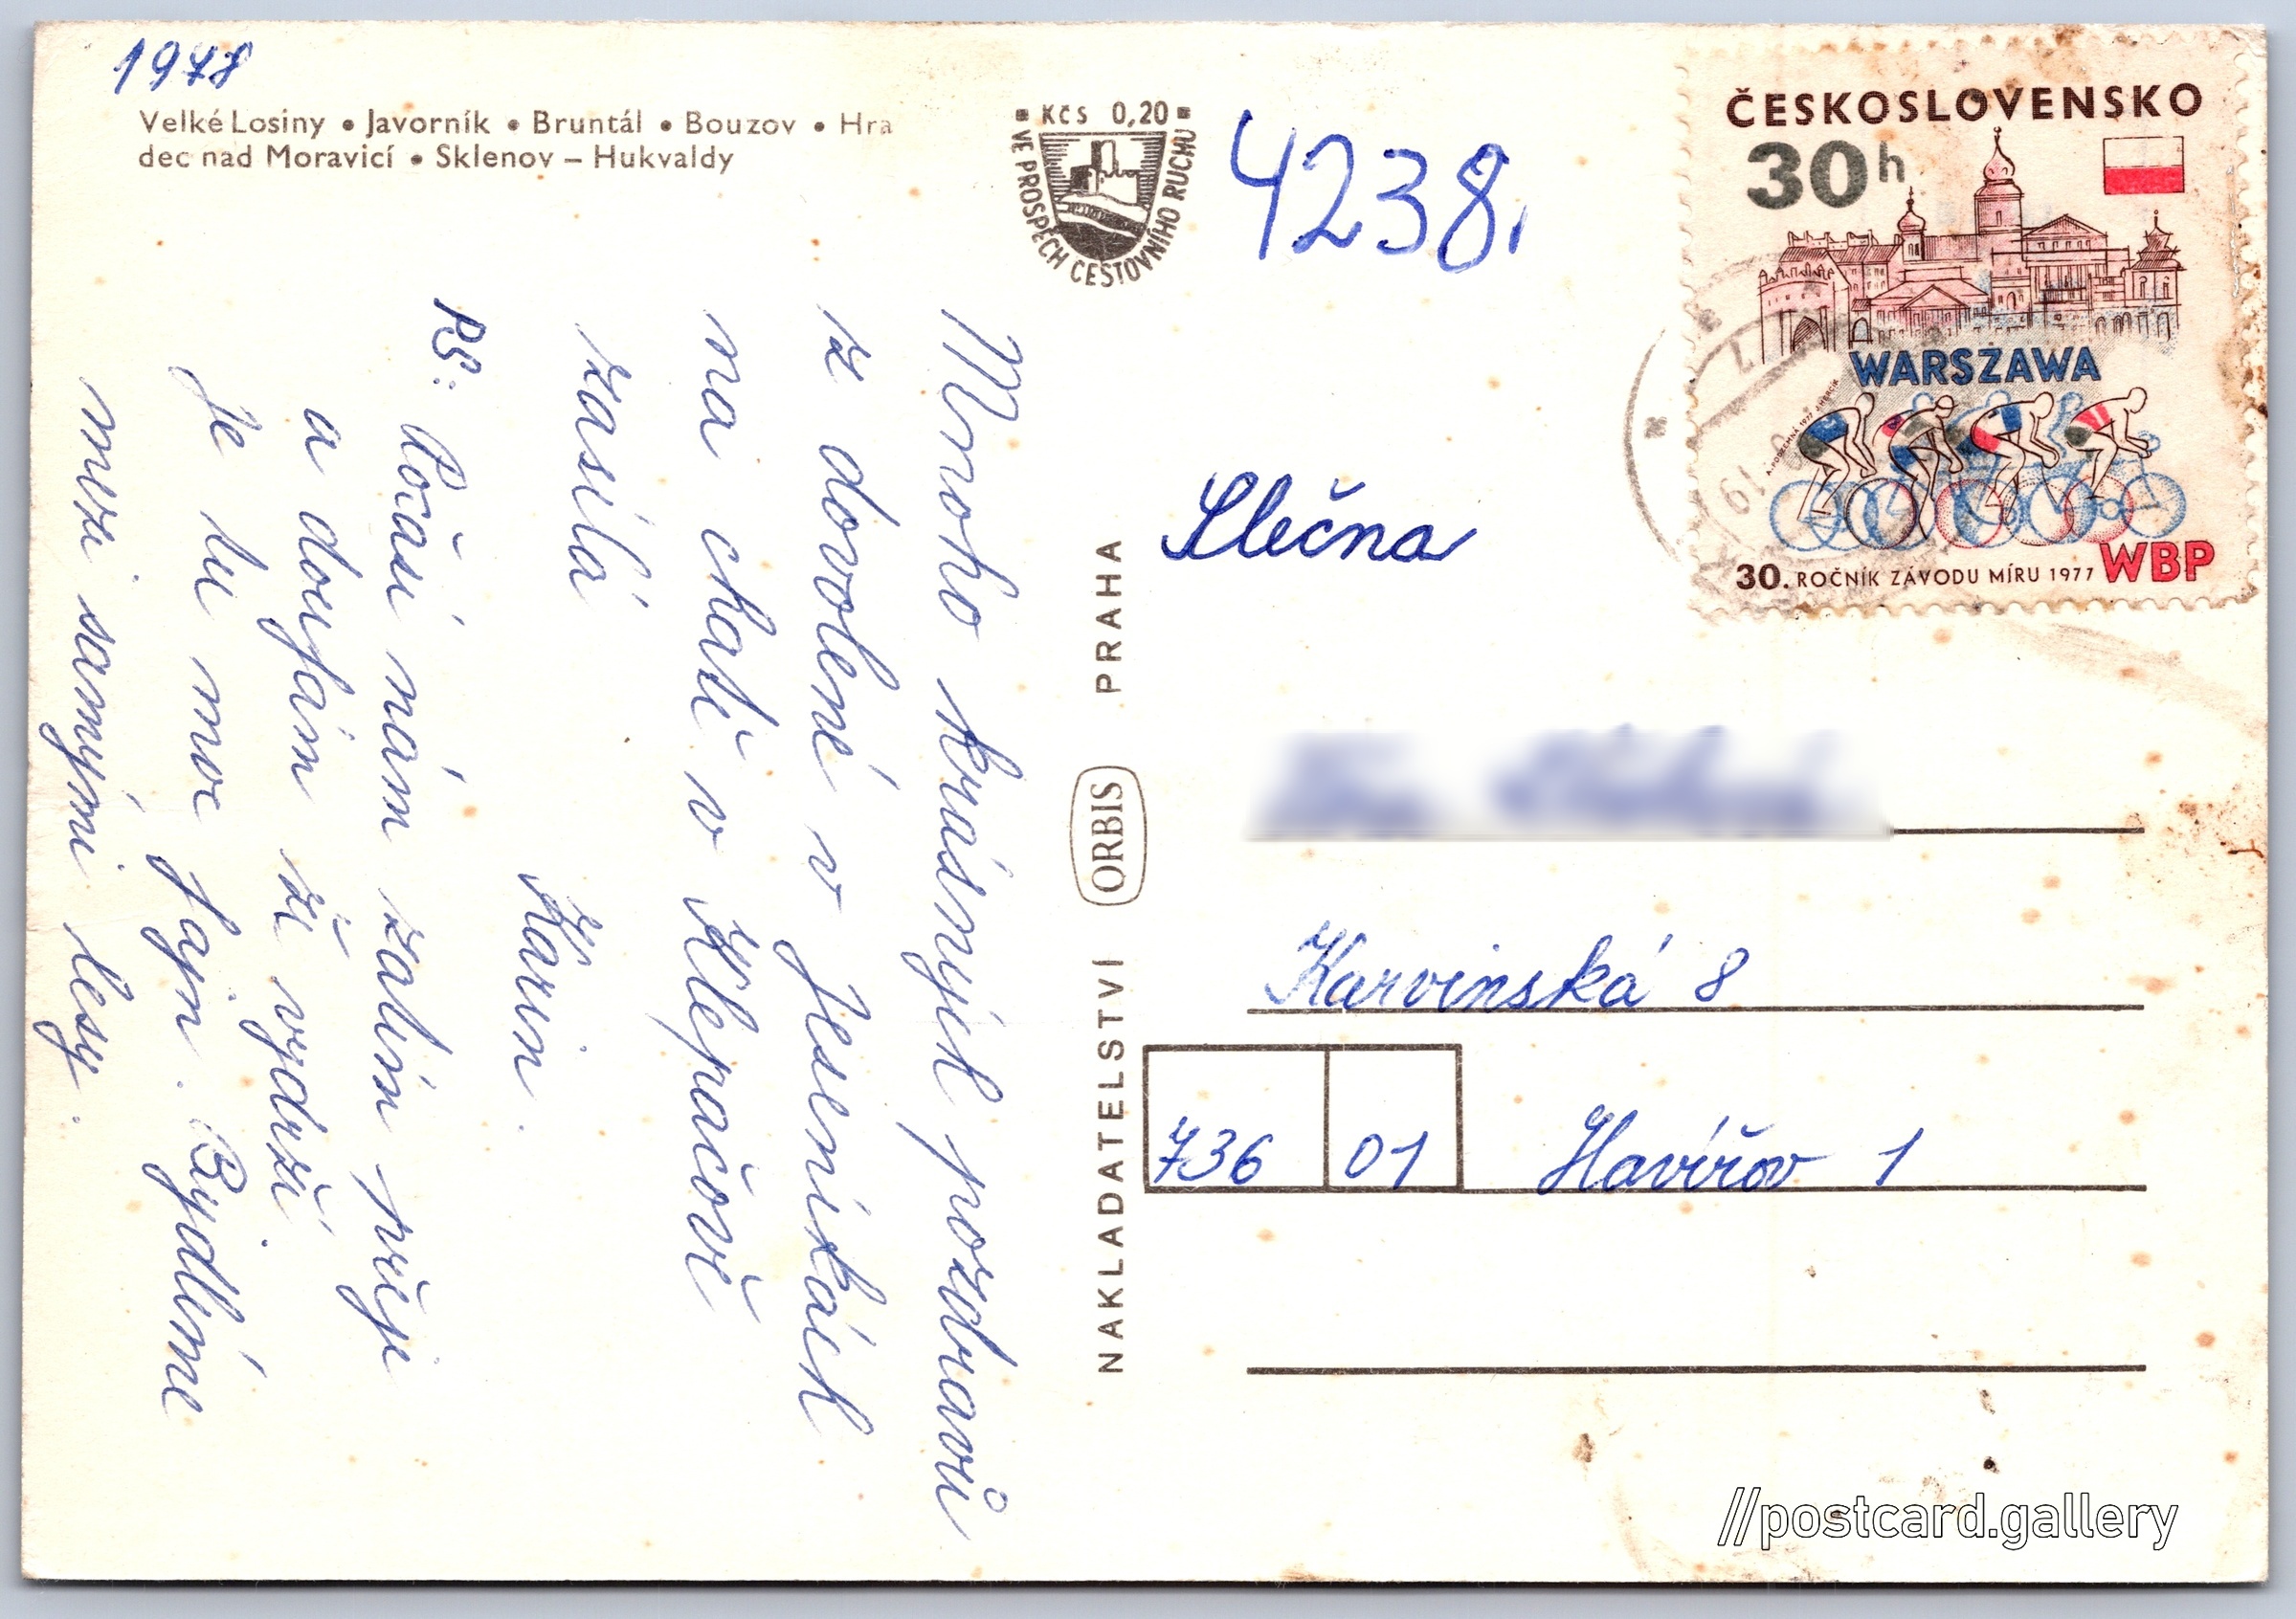 1978
Velké Losiny • Javorník • Bruntál • Bouzov • Hra
dec nad Moravicí • Sklenov – Hukvaldy
KČS 0,20
VE PROSPĚCH CESTOVNÍHO RUCHU
4238,
ČESKOSLOVENSKO
30h
WARSZAWA
30. ROČNÍK ZÁVODU MÍRU 1977 WBP
Mnoho krásných pozdravů
z dovolené v Jeseníkách
na chatě v Klepáčově
zasílá
Karin.
PS: Počasí nám zatím přeje
a doufám že vydrží.
Je tu moc fajn. Bydlíme
mezi samými lesy.
NAKLADATELSTVÍ ORBIS PRAHA
Slečna
Karvinská 8
736 01 Havířov 1
//postcard.gallery